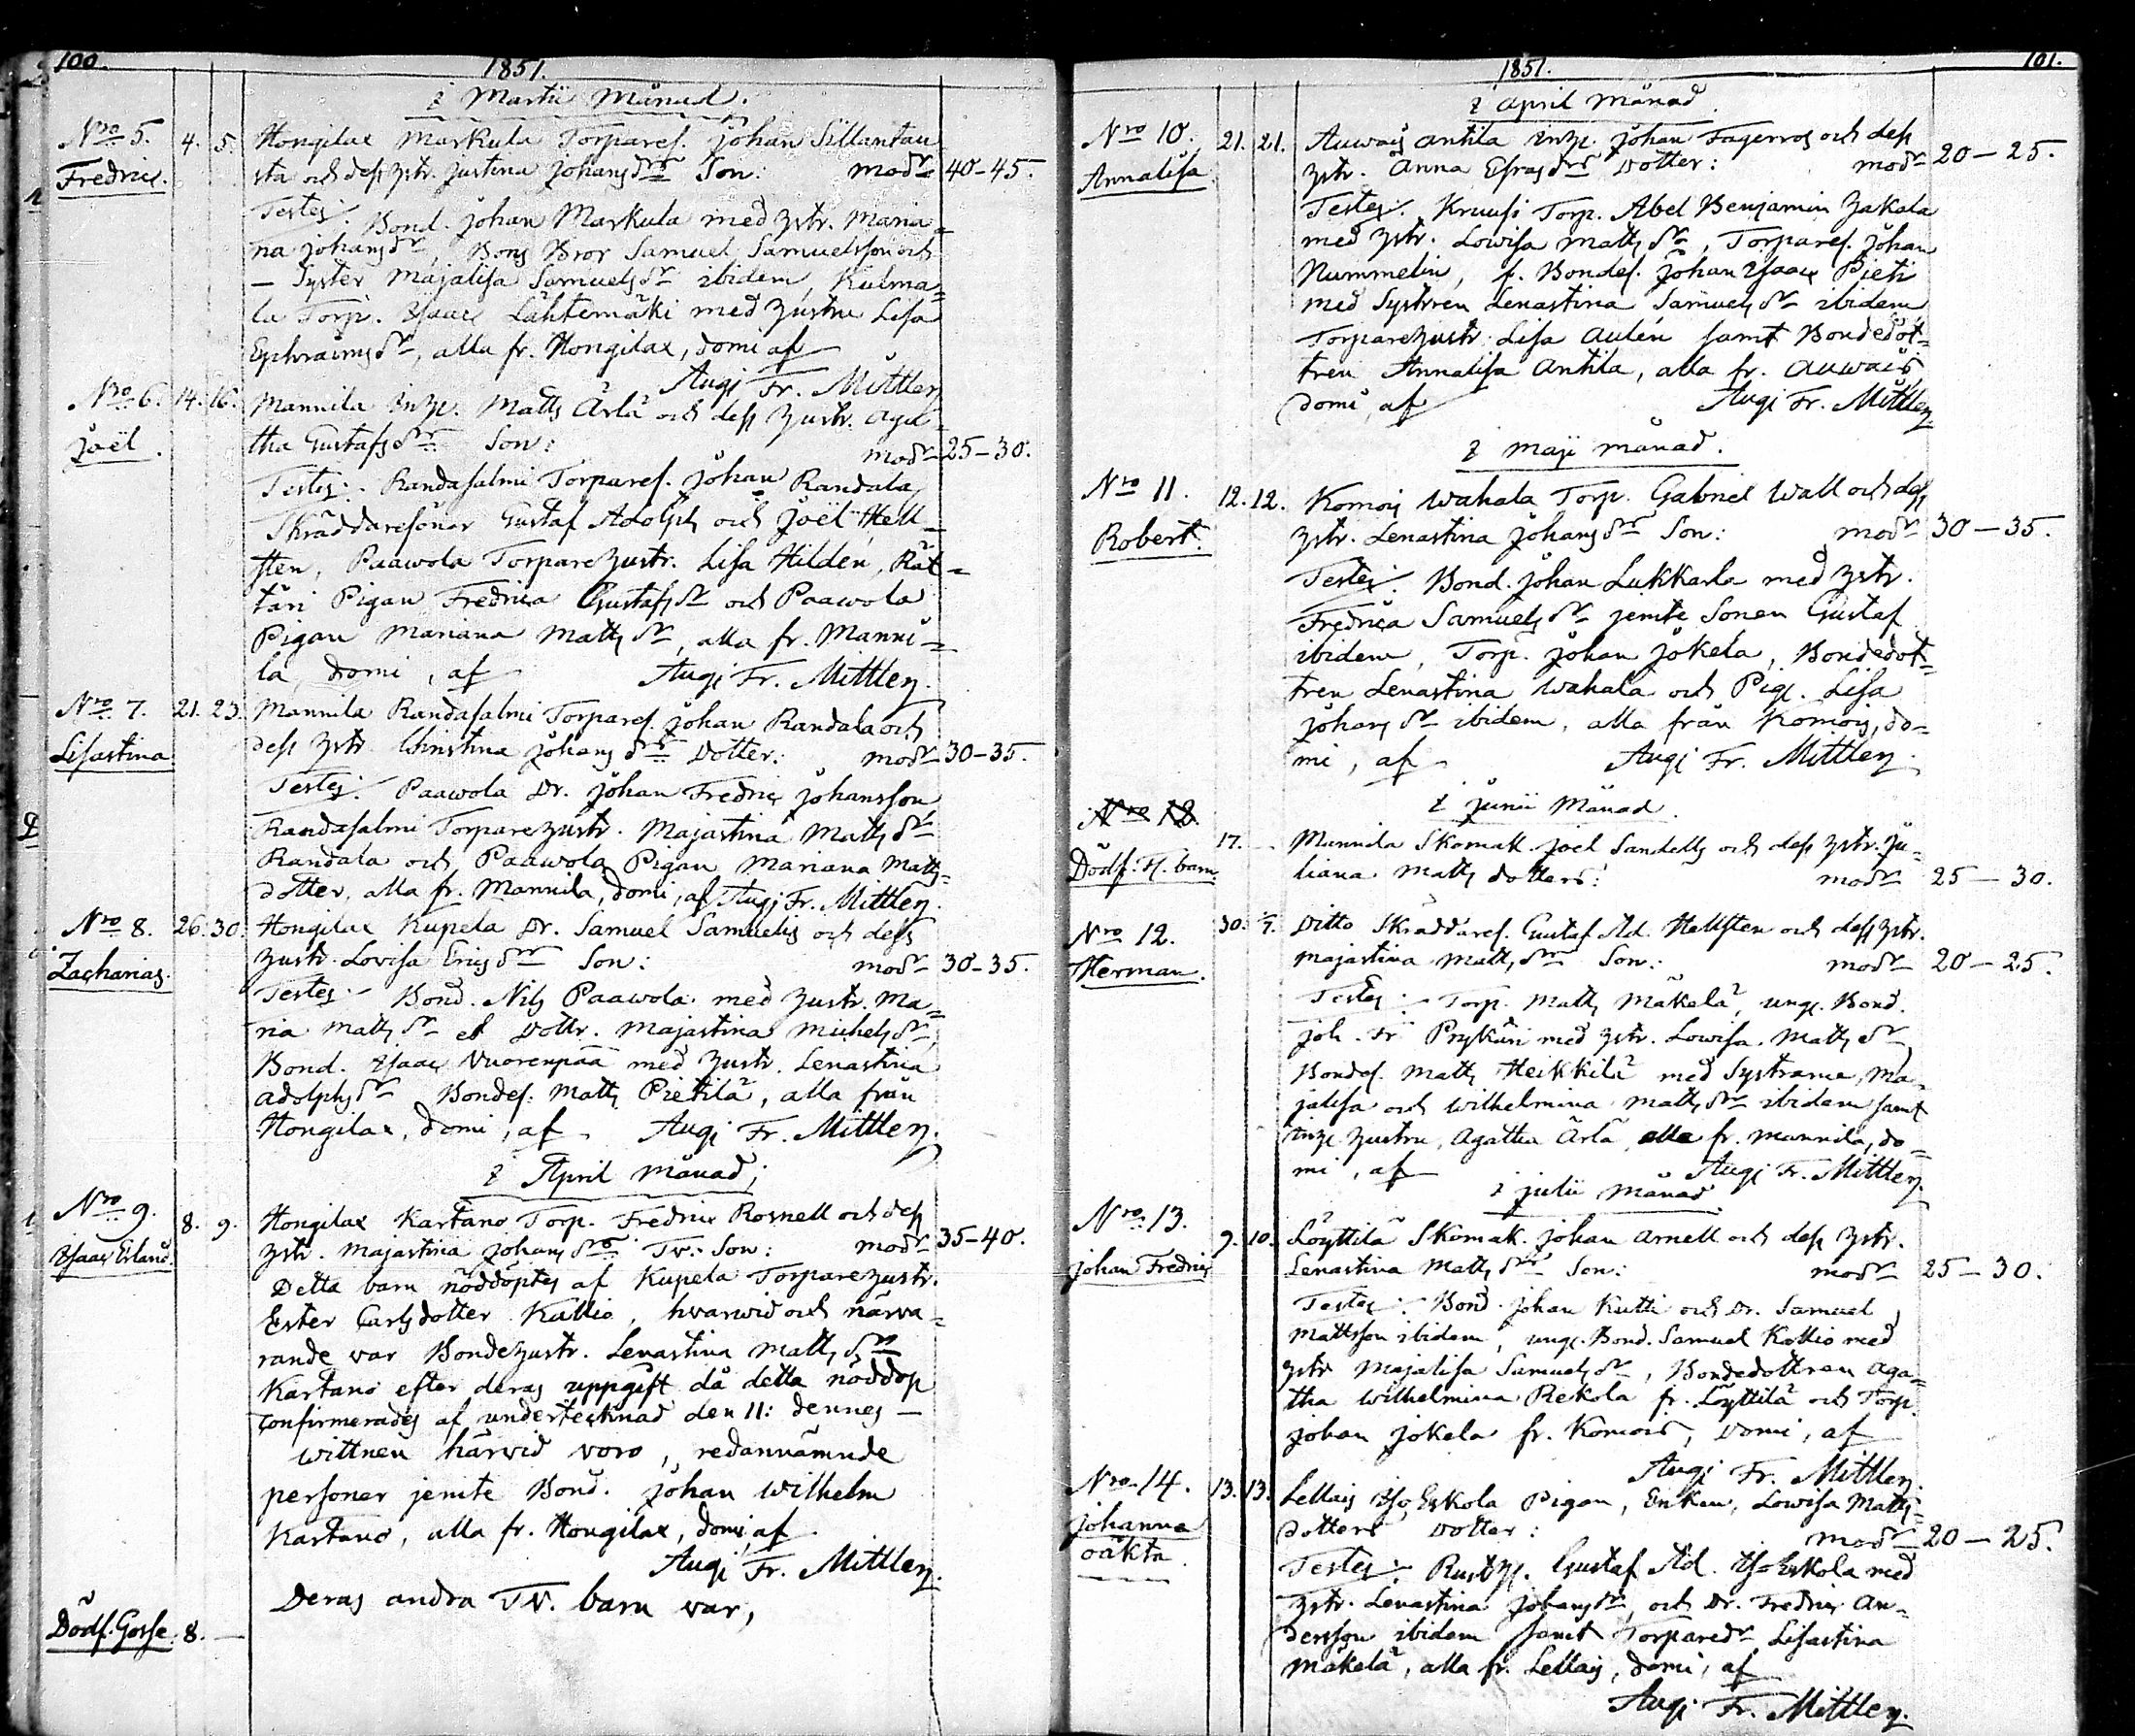 100.
1851.
i Martii Månad.
Nro 5. 4. 5. Hongilax Markula Torparef. Johan Sillantau
Fredric. sta och dess hstr. Justina Johansdrs Son: modr 40-45.
Testes: Bond. Johan Markula med hstr. Maria=
na Johansdr, Bons Bror Samuel Samuelsson och
Syster Majalisa Samuelsdr ibidem, Kulma=
la Torp. Isaac Lähtemäki med hustru Lisa
Ephraimsdr, alla fr. Hongilax, domi af
Augi Fr. Mittler
Nro 6. 14. 16. Mannila Inh. Matts Ärlä och dess hustr. Aga
Joël. tha Gustafsdrs Son: modr 25-30.
Testes: Randasalmi Torparef. Johan Randala
Skräddaresöner Gustaf Adolph och Joël Hell-
sten, Paawola Torparehustr. Lisa Hildén, Rät=
täri Pigan Fredrica Gustafsdr och Paawola
Pigan Mariana Mattsdr, alla fr. Manni=
la, domi, af Augi Fr. Mittler.
Nro 7. 21. 23. Mannila Randasalmi Torparef. Johan Randala och
Lisastina dess hstr Christina Johansdrs Dotter: modr 30-35.
Testes: Paawola Dr. Johan Fredric Johansson
Randasalmi Torparehustr. Majastina Mattsdr
Randala och Paawola Pigan Mariana Matts=
dotter, alla fr. Mannila, domi, af Augi Fr. Mittler.
Nro 8. 26. 30. Hongilax Kupela Dr. Samuel Samuelis och dess
Zacharias. hustr. Lovisa Ericsdrs Son: modr 30-35.
Testes: Bond. Nils Paawola med hustr. Ma=
ria Mattsdr et Dottr. Majastina Michelsdr,
Bond. Isaac Vuorenpää med hustr. Lenastina
Adolphsdr Bondes. Matts Pietilä, alla från
Hongilax, domi, af Augi Fr. Mittler.
i April Månad;
Nro 9. 8. 9. Hongilax Kartano Torp. Fredric Rosnell och dess
Isaac Erland. hstr. Majastina Johansdrs Tv. Son: modr 35-40.
Detta barn nöddöptes af Kupela Torparehustr.
Ester Carlsdotter Kallio, hwarwid och närwa=
rande war Bondehustr. Lenastina Mattsdr
Kartano efter deras uppgift då detta nöddop
confirmerades af undertecknad den 11: dennes—
wittnen härwid voro, redannämnde
personer jemte Bond. Johan Wilhelm
Kartano, alla fr. Hongilax, domi, af
Augi Fr. Mittler.
Deras andra Tv. barn war,
Dödf. Gosse. 8. —
101.
1851.
i April Månad
Nro 10. 21. 21. Auwais Antila Inh. Johan Fagerros och dess
Annalisa. hstr. Anna Esrasdrs Dotter: modr 20-25.
Testes: Kruusi Torp. Abel Benjamin Jakala
med hstr. Lowisa Mattsdr, Torparef. Johan
Nummelin, f. Bondes. Johan Isaac Pieti
med Systren Lenastina Samuelsdr ibidem
Torparehustr: Lisa Aulén samt Bondedot=
tren Annalisa Antila, alla fr. Auwais
domi, af Augi Fr. Mittler
i Maji månad.
Nro 11. 12. 12. Komois Wahala Torp. Gabriel Wall och dess
Robert. hstr. Lenastina Johansdrs Son: modr 30-35.
Testes: Bond. Johan Lukkarla med hstr.
Fredrica Samuelsdr jemte Sonen Gustaf
ibidem, Torp. Johan Jokela, Bondedot=
tren Lenastina Wahala och Pig. Lisa
Johansdr ibidem, alla från Komois, do=
mi, af Augi Fr. Mittler.
i Junii Månad.
Nro 12.
17. — Mannila Skomak. Joel Sandells och dess hstr. Ju=
Dödf. Fl. barn. liana Matts dotters: modr 25-30.
Nro 12. 30. 2/7. Ditto Skräddaref. Gustaf Ad. Hellsten och dess hstr.
Herman. Majastina Mattsdrs Son: modr 20-25.
Testes: Torp. Matts Mäkelä, ung. Bond.
Joh. Fr. Prykäri med hstr. Lowisa Mattsdr
Bondes. Matts Heikkilä med Systrarne, Ma=
jalisa och Wilhelmina Mattsdr ibidem samt
Inh. hustru, Agatha Ärlä alla fr. Mannila, do=
mi, af Augi Fr. Mittler.
i Julii Månad
Nro 13. 9. 10. Löyttilä Skomak. Johan Arnell och dess hstr.
Johan Fredric Lenastina Mattsdrs Son: modr 25-30.
Testes: Bond. Johan Kutti och Dr. Samuel
Mattsson ibidem, ung. Bond. Samuel Kallio med
hstr Majalisa Samuelsdr, Bondedottren Aga=
tha Wilhelmina Rekola fr. Löyttilä och Torp.
Johan Jokela fr. Komois, Domi, af
Augi Fr. Mittler.
Nro 14. 13. 13. Lellais Iso Eskola Pigan, Enkan, Lowisa Matts=
Johanna dotters Dotter: modr 20-25.
oäkta. Testes: Rusth. Gustaf Ad. Iso Eskola med
hstr. Lenastina Johansdr, och Dr. Fredric An=
dersson ibidem samt Torparedr Lisastina
Mäkelä, alla fr. Lellais, domi, af
Augi Fr. Mittler.